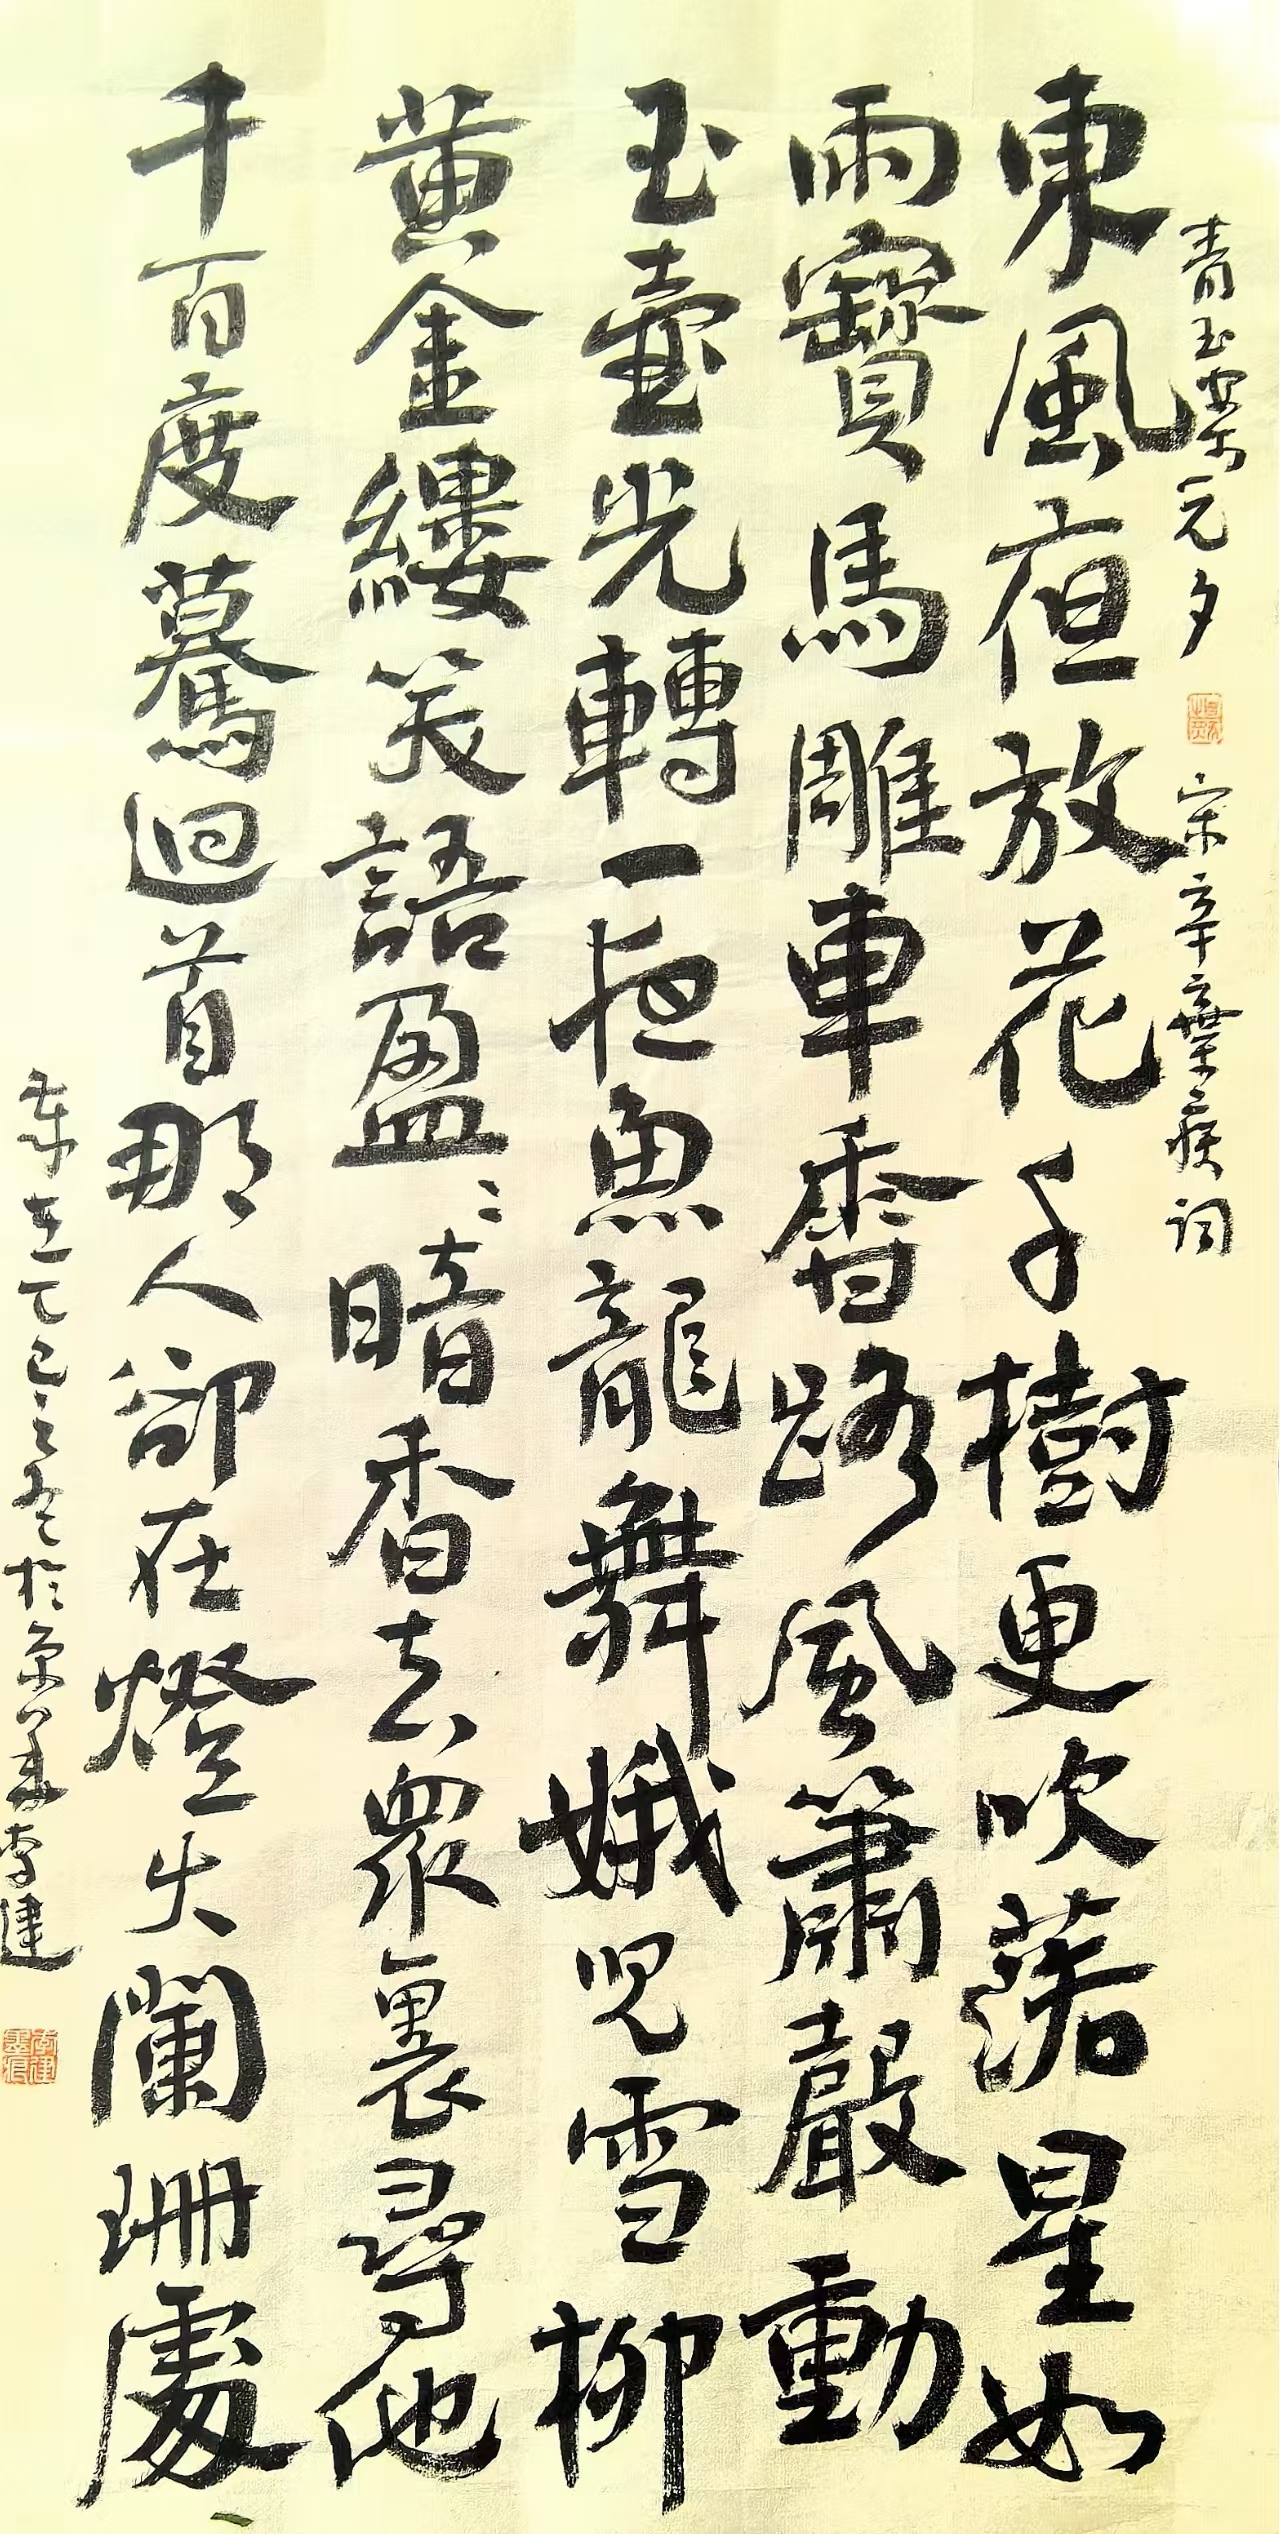 青玉案元夕
宋辛棄疾词
東風夜放花千樹更吹落星如
雨寶馬雕車香路風簫聲動
玉壺光轉一夜魚龍舞娥兒雪柳
黄金縷笑語盈〻暗香去眾裏尋他
千百度驀迴首那人卻在燈火闌珊處
乙巳之冬於京華李建